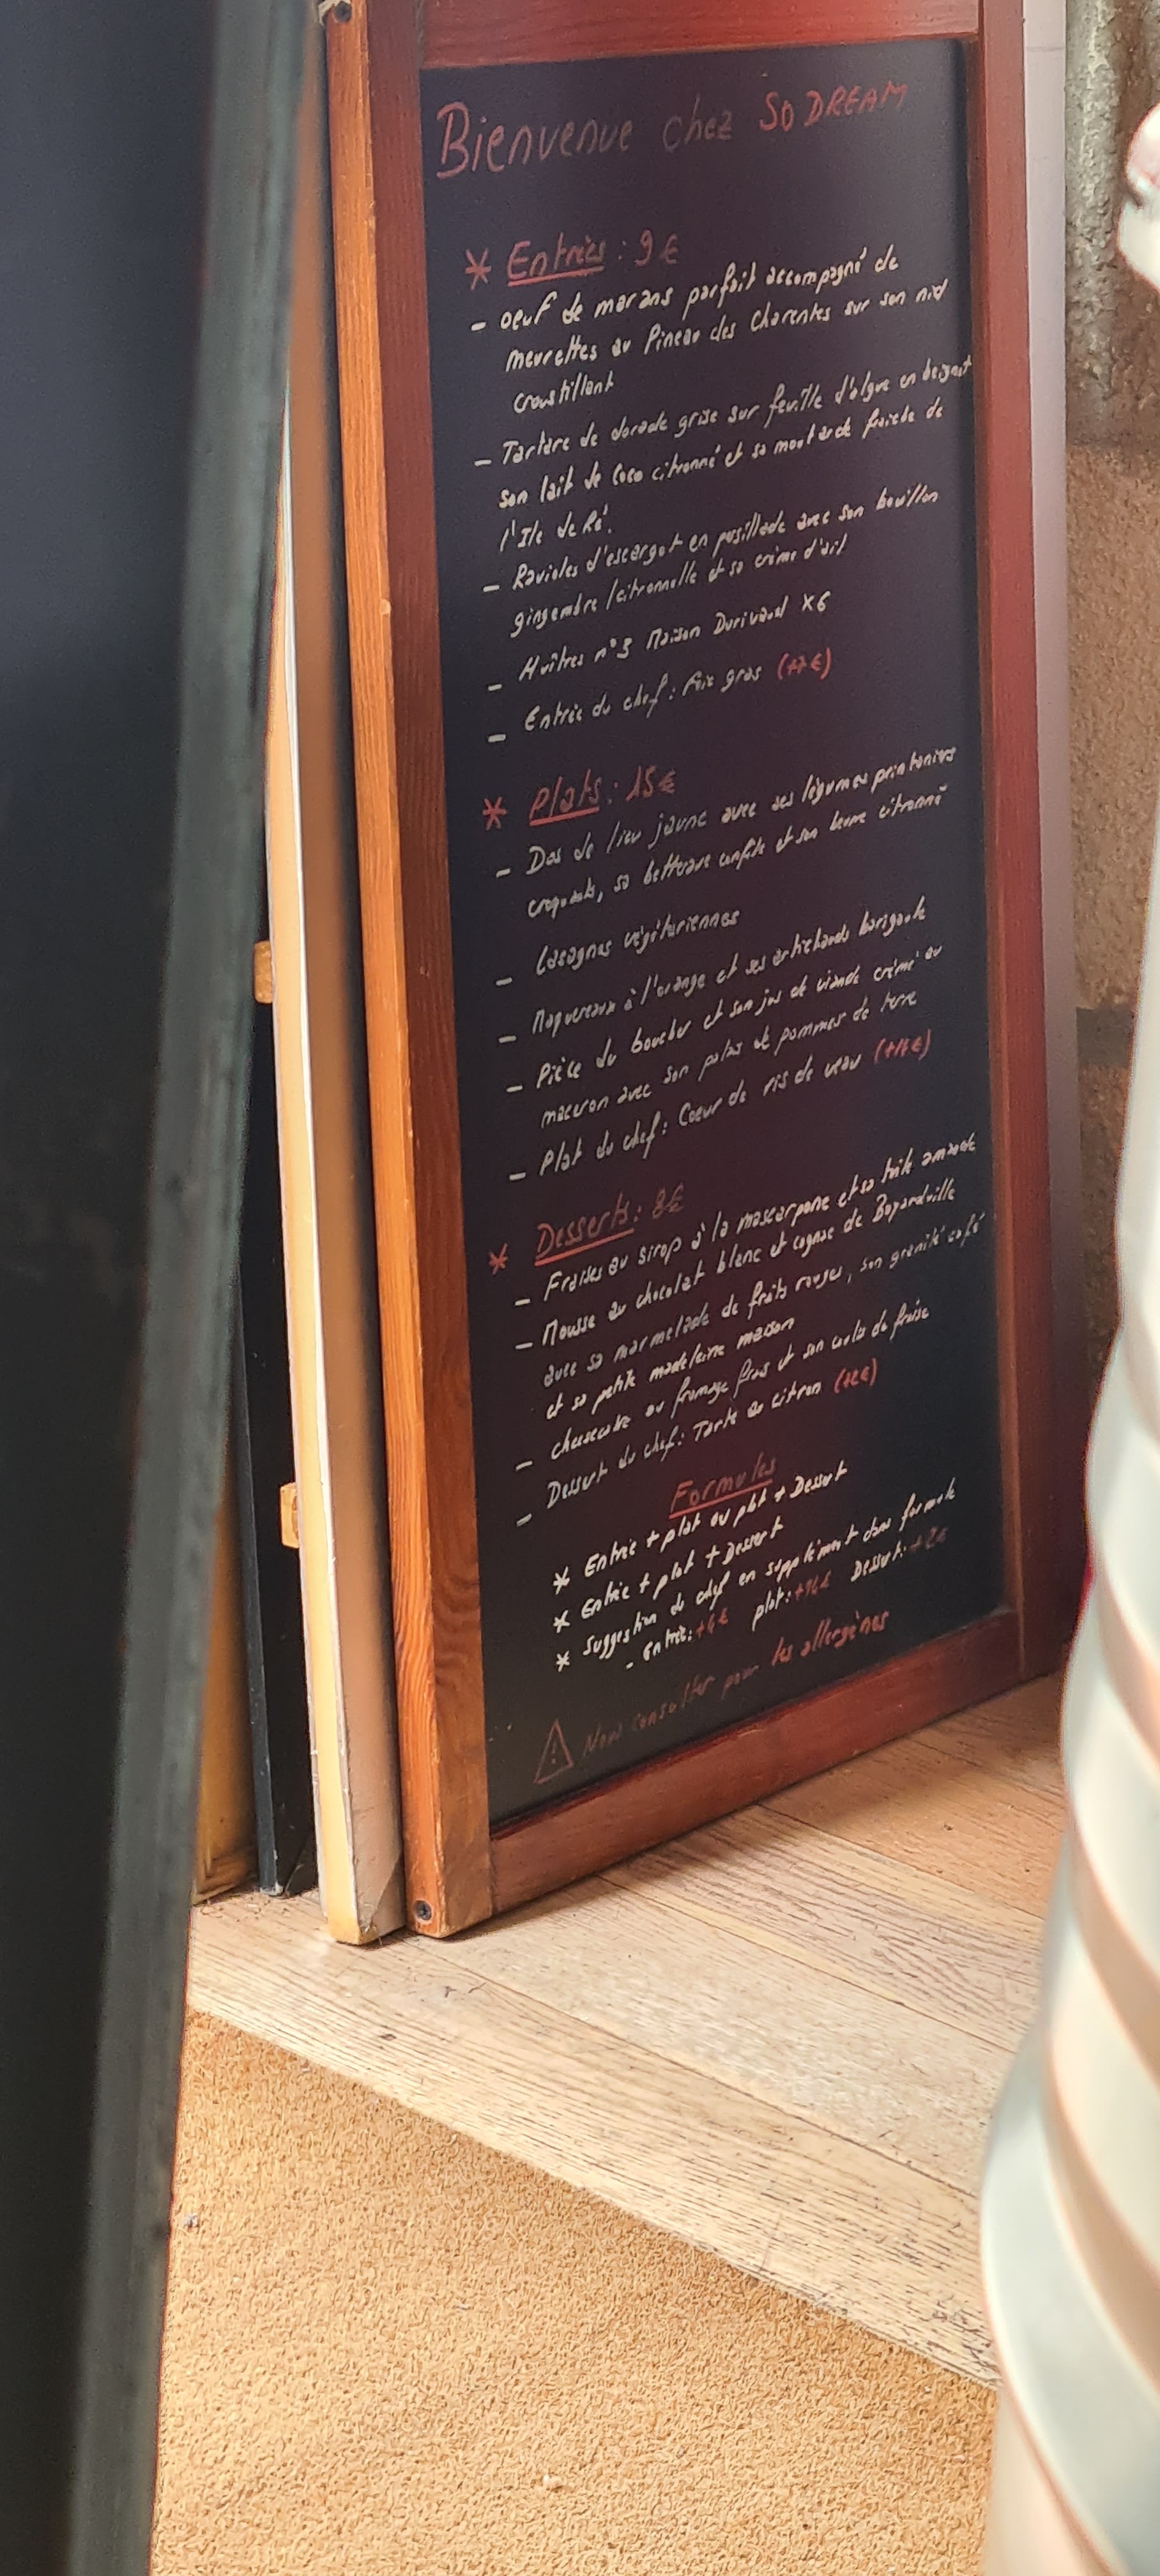 Bienvenue chez SO DREAM
* Entrées : 9 €
- oeuf de marans parfait accompagné de
meurettes au Pineau des Charentes sur son nid
croustillant
- Tartare de dorade grise sur feuille d'algue en beignet
son lait de coco citronné et sa moutarde fraiche de
l'Ile de Ré.
- Ravioles d'escargot en persillade avec son bouillon
gingembre / citronnelle et sa crème d'ail
- Huîtres n°3 Maison Durivaud X6
- Entrée du chef : Foie gras
* Plats : 15 €
- Dos de lieu jaune avec ses légumes printaniers
croquants, sa betterave confite et son beurre citronné
- Lasagnes végétariennes
- Maquereaux à l'orange et ses artichauds barigoule
- Pièce du boucher et son jus de viande crémé au
maceron avec son palas de pommes de terre
- Plat du chef : Coeur de ris de veau
* Desserts : 8€
- Fraises au sirop à la mascarpone et sa tuile amande
- Mousse au chocolat blanc et cognac de Boyardville
avec sa marmelade de fruits rouges, son granité café
et sa petite madeleine maison
- cheesecake au fromage frais et son coulis de fraise
- Dessert du chef : Tarte au citron (+2€)
Formules
* Entrée + plat ou plat + Dessert
* Entrée + plat + Dessert
* Suggestion du chef en supplément dans formule
- Entrée: plat: Dessert: +2€
⚠ Nous consulter pour les allergènes